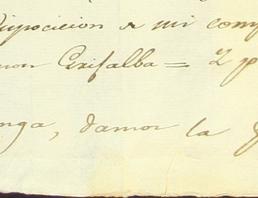 Disposicion a mi comp
mon Grifalba = 2 p
nga, damos la